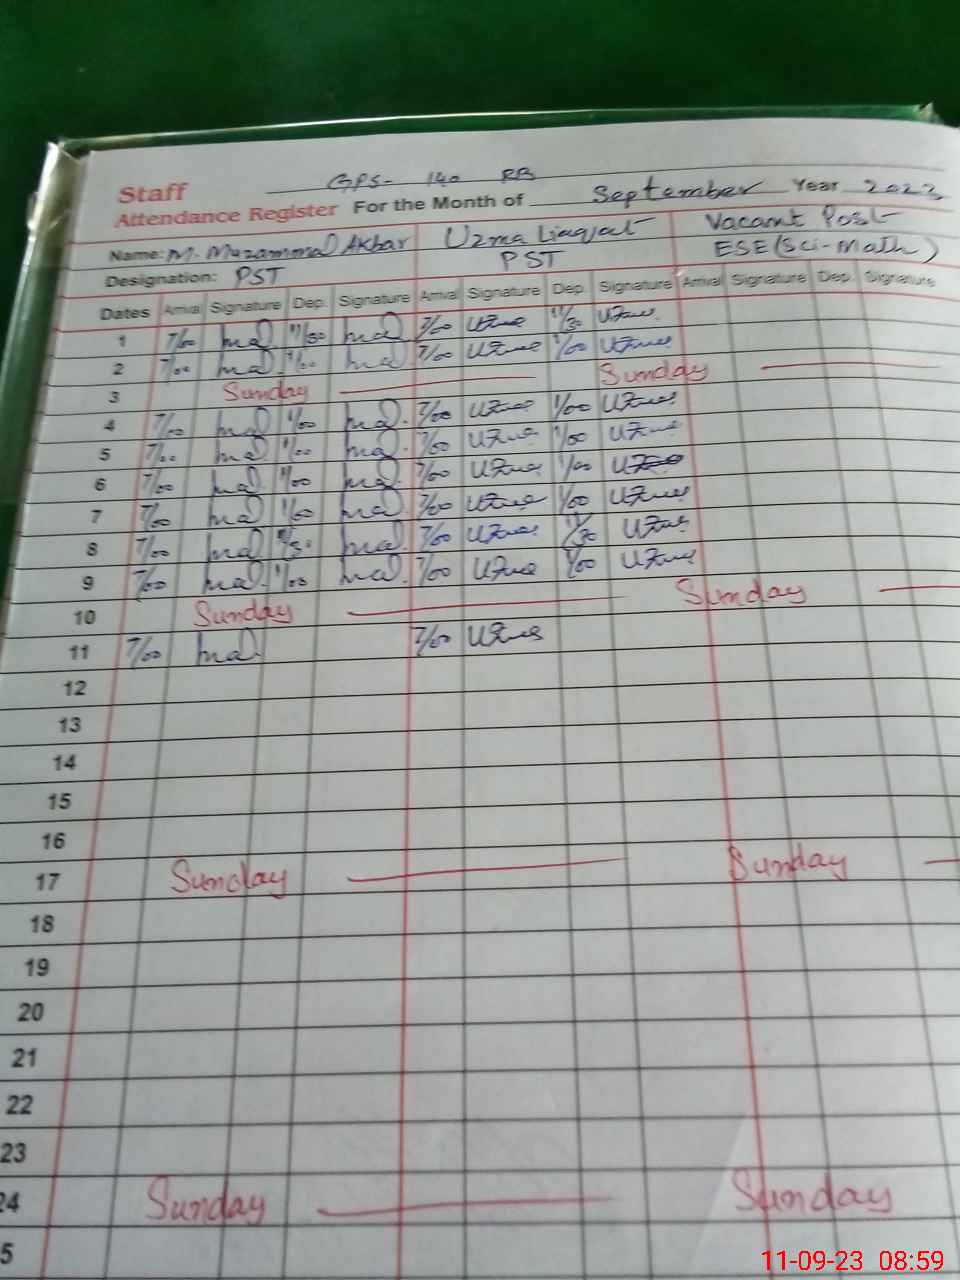 GPS- 140 RB
Staff
Attendance Register For the Month of September Year 2023
Name: M. Muzammal Akbar Uzma Liaqat Vacant Post
Designation: PST PST ESE (Sci-Math)
Dates Arrival Signature Dep. Signature Arrival Signature Dep. Signature Arrival Signature Dep. Signature
1 7/00 11/30 7/00 Uzma 11/30 Uzma
2 7/00 1/00 7/00 Uzma 1/00 Uzma
3 Sunday Sunday
4 7/00 1/00 7/00 Uzma 1/00 Uzma
5 7/00 1/00 7/00 Uzma 1/00 Uzma
6 7/00 1/00 7/00 Uzma 1/00
7 7/00 1/00 7/00 Uzma 1/00 Uzma
8 7/00 11/30 7/00 Uzma 11/30 Uzma
9 7/00 1/00 7/00 Uzma 1/00 Uzma
10 Sunday Sunday
11 7/00 7/00 Uzma
12
13
14
15
16
17 Sunday Sunday
18
19
20
21
22
23
24 Sunday Sunday
5
11-09-23 08:59